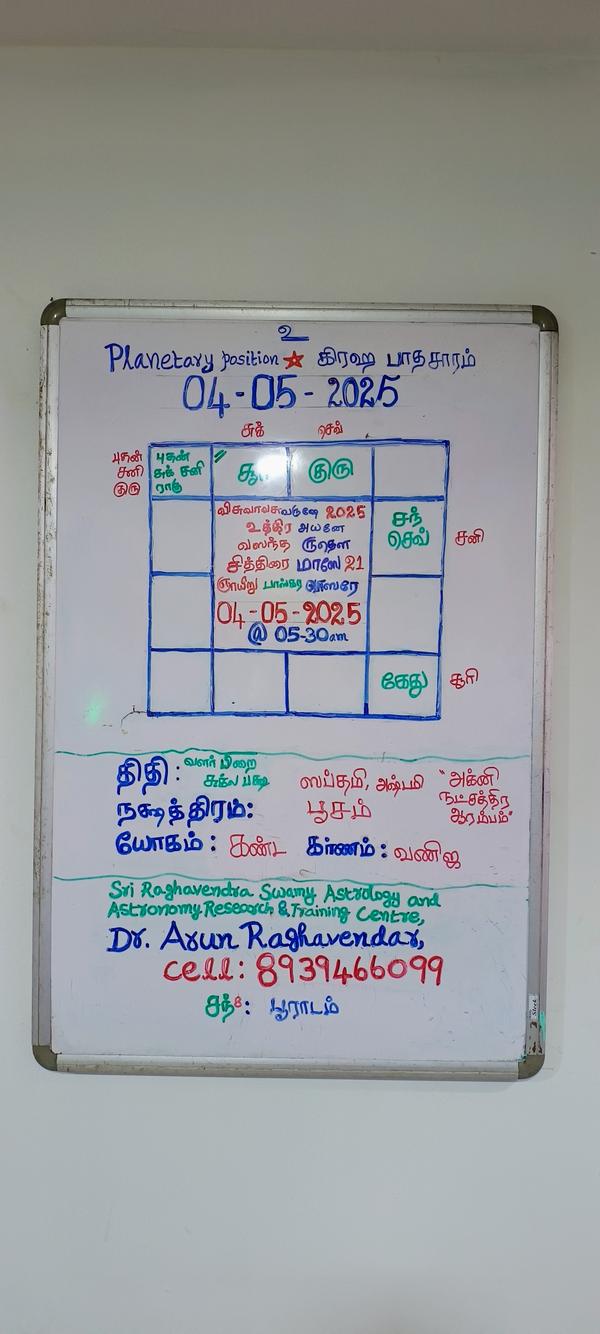 உ
Planetary position ★ கிரஹ பாதசாரம்
04-05-2025
சுக் செவ்
புதன்
சனி
குரு
புதன்
சுக் சனி
ராகு
குரு
சந்
செவ்
சனி
விசுவாவசுவருஷே 2025
உத்திர அயனே
வஸந்த ருதௌ
சித்திரை மாஸே 21
ஞாயிறு பாஸ்கர வாஸரே
04-05-2025
@ 05-30am
கேது
சூரி
திதி: வளர் பிறை
சுக்ல பக்ஷ
ஸப்தமி, அஷ்டமி
"அக்னி
நட்சத்திர
ஆரம்பம்"
நக்ஷத்திரம்: பூசம்
யோகம்: கண்ட கர்ணம்: வணிஜ
Sri Raghavendra Swamy Astrology and
Astronomy Research & Training Centre,
Dr. Arun Raghavendar,
cell: 8939466099
சந் 8: பூராடம்